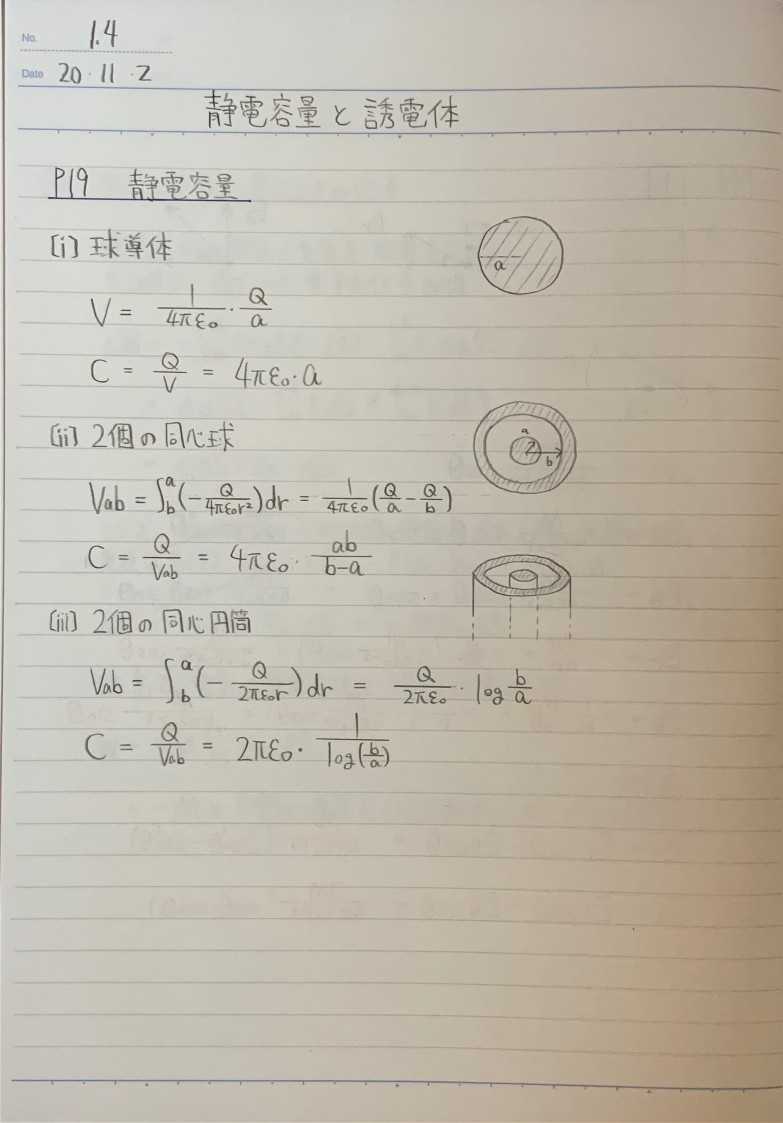 No. 1.4
Date 20・11・2
静電容量と誘電体
P19 静電容量
[i] 球導体
a
V = 1/4πε₀ · Q/a
C = Q/V = 4πε₀·a
[ii] 2個の同心球
a
b
Vab = ∫_b^a (-Q/4πε₀r²)dr = 1/4πε₀ (Q/a - Q/b)
C = Q/Vab = 4πε₀· ab/b-a
[iii] 2個の同心円筒
Vab = ∫_b^a (-Q/2πε₀r)dr = Q/2πε₀ · log b/a
C = Q/Vab = 2πε₀· 1/log(b/a)